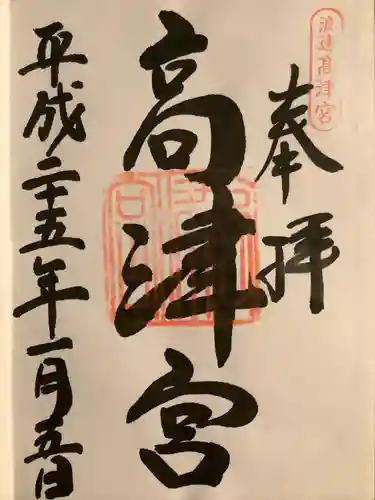 浪速高津宮
奉拝
高津宮
平成二十五年一月五日